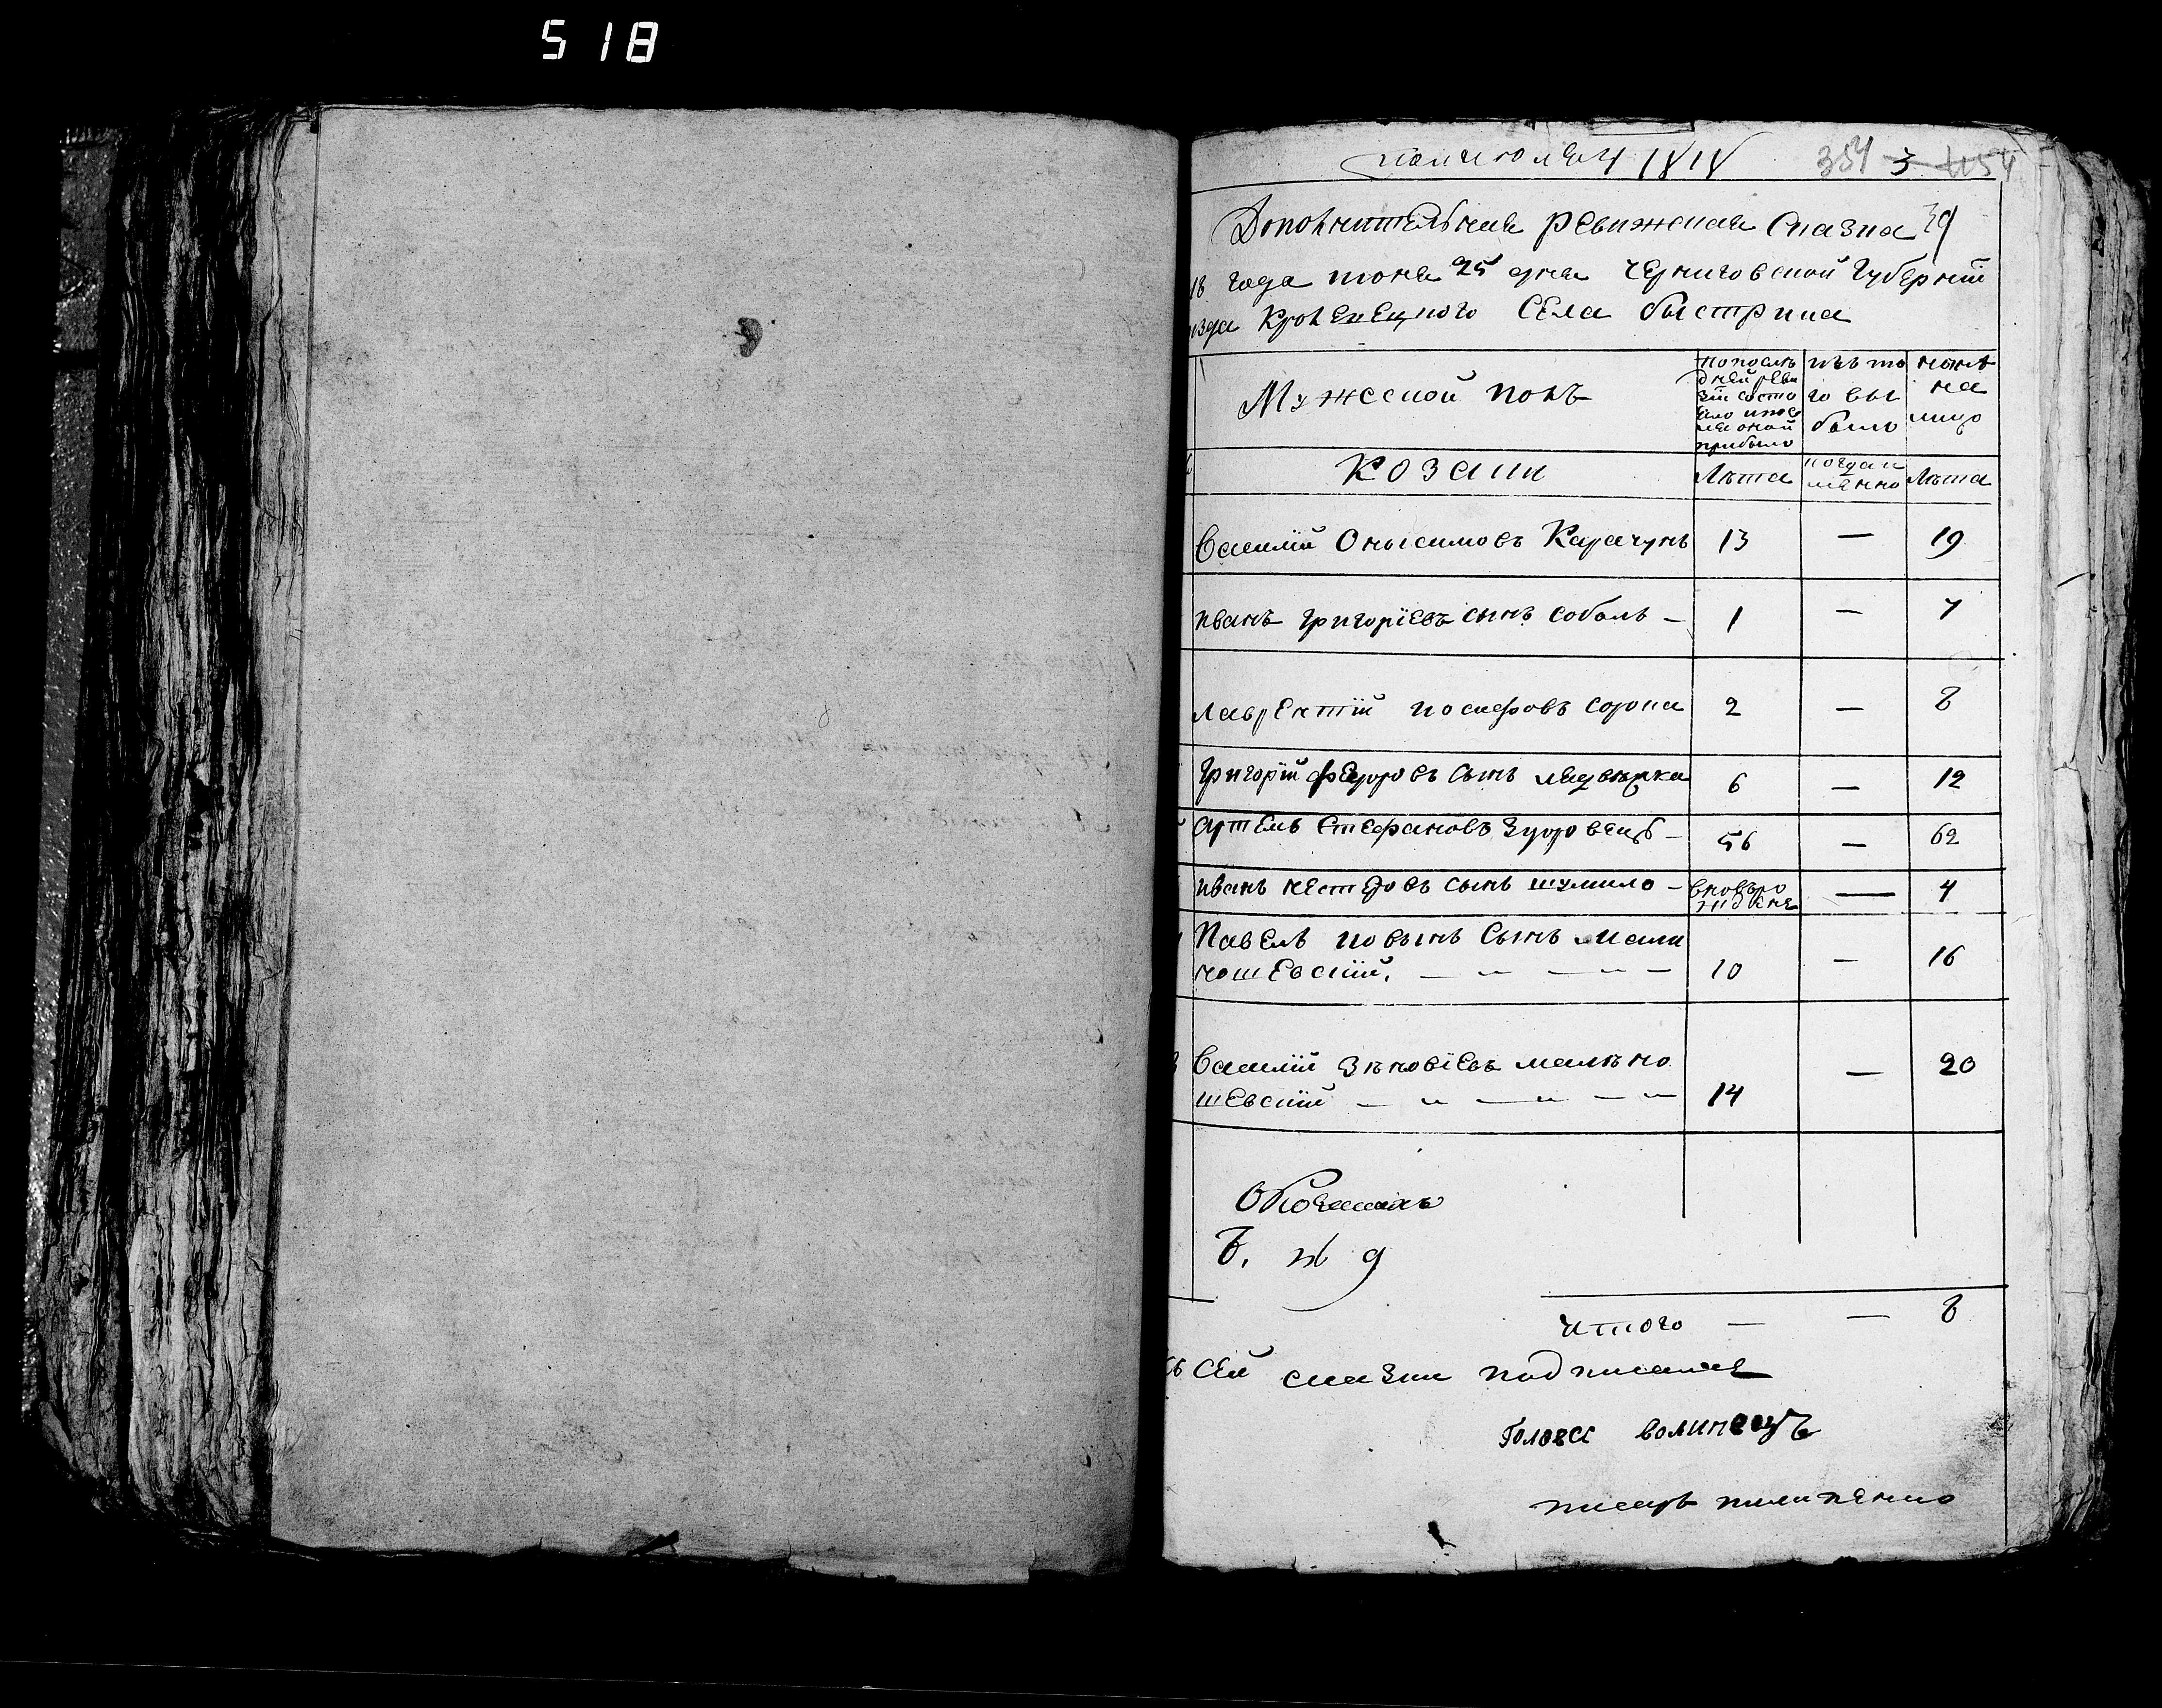 518
1818
354 3 454
Дополнителная ревижская сказка 39
18 года июня 25 дня Черниговской Губернии
изда Кролевецкого Села быстрика
Мужеской полъ
по послѣ
дней реви
зіи состо
яло и посл
ля оной
прибыло
изъ то
го вы
было
нынѣ
на
лицо
Козаки
Лѣта
когда и
менно
Лѣта
Василій Онысимовъ Карачунъ 13 — 19
иванъ григоріевъ сынъ соболь — 1 — 7
лаврентій иосифовъ сорока 2 — 8
григорій федоровъ сынъ медведка 6 — 12
артемъ Стефановъ Здоровецъ — 56 — 62
иванъ нестеровъ сынъ шумило — вновъро — 4
ждене
Павелъ иовынъ Сынъ мали
ношевскій. — „ — „ — 10 — 16
Василій Зѣновіевъ малѣно — 20
шевскій — „ — „ — „ 14
8. № 9
итого — — 8
къ сей сказки подписался
Голова волинецъ
писарь пилипенко